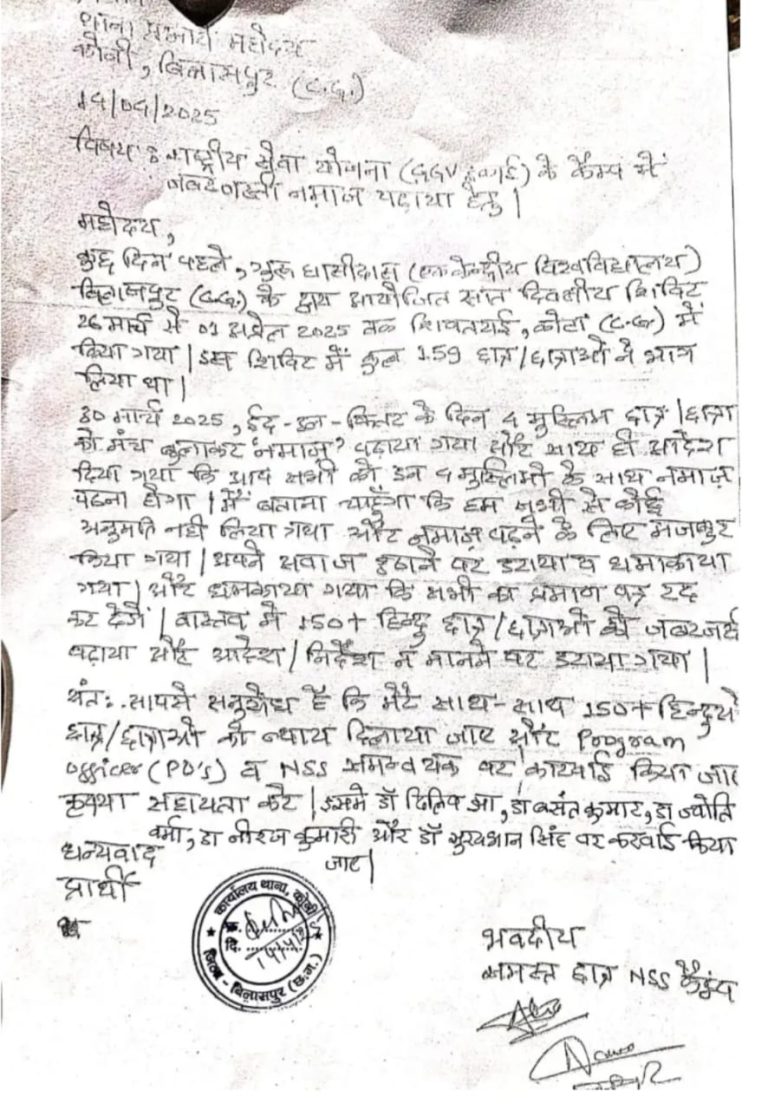 थाना प्रभारी महोदय
कोनी, बिलासपुर (C.G.)
14/04/2025
विषय : राष्ट्रीय सेवा योजना (GGV इकाई) के कैम्प में
जबरजस्ती नमाज पढ़ाया हेतु |
महोदय,
कुछ दिन पहले, गुरु घासीदास (एक केन्द्रीय विश्वविद्यालय)
बिलासपुर (C.G.) के द्वारा आयोजित सात दिवसीय शिविर
26 मार्च से 01 अप्रैल 2025 तक शिवतराई, कोटा (C.G.) में
किया गया | इस शिविर में कुल 159 छात्र/छात्राओ ने भाग
लिया था |
30 मार्च 2025, ईद-उल-फितर के दिन 4 मुस्लिम छात्र/छात्रा
को मंच बुलाकर 'नमाज़' पढ़ाया गया और साथ ही आदेश
दिया गया कि आप सभी को इन 4 मुस्लिमो के साथ नमाज़
पढना होगा | मैं बताना चाहूँगा कि हम सभी से कोई
अनुमति नही लिया गया और नमाज़ पढ़ने के लिए मजबुर
किया गया | अपने आवाज उठाने पर डराया व धमाकाया
गया | और धमकाया गया कि सभी का प्रमाण पत्र रद
कर देगें | वास्तव मे 150+ हिन्दु छात्र/छात्राओ को
पढ़ाया और आदेश/निर्देश न मानने पर डराया गया |
अंत: आपसे अनुरोध है कि मेरे साथ-साथ 150+ हिन्दुये
छात्र/छात्राओ को न्याय दिलाया जाए और Program
officer (PO's) व NSS समन्वयक पर कारवाई किया जाए
कृपया सहायता करे | इसमे डॉ दिलिप झा, डा बसंत कुमार, डा ज्योति
वर्मा, डा नीरज कुमारी और डॉ सुर्यभान सिंह पर करवाई किया
जाए |
धन्यवाद
प्रार्थी
कार्यालय थाना, कोनी
क्र.
दि. 14/4/25
जिला - बिलासपुर (छ.ग.)
भवदीय
समस्त छात्र NSS कैडेट्स